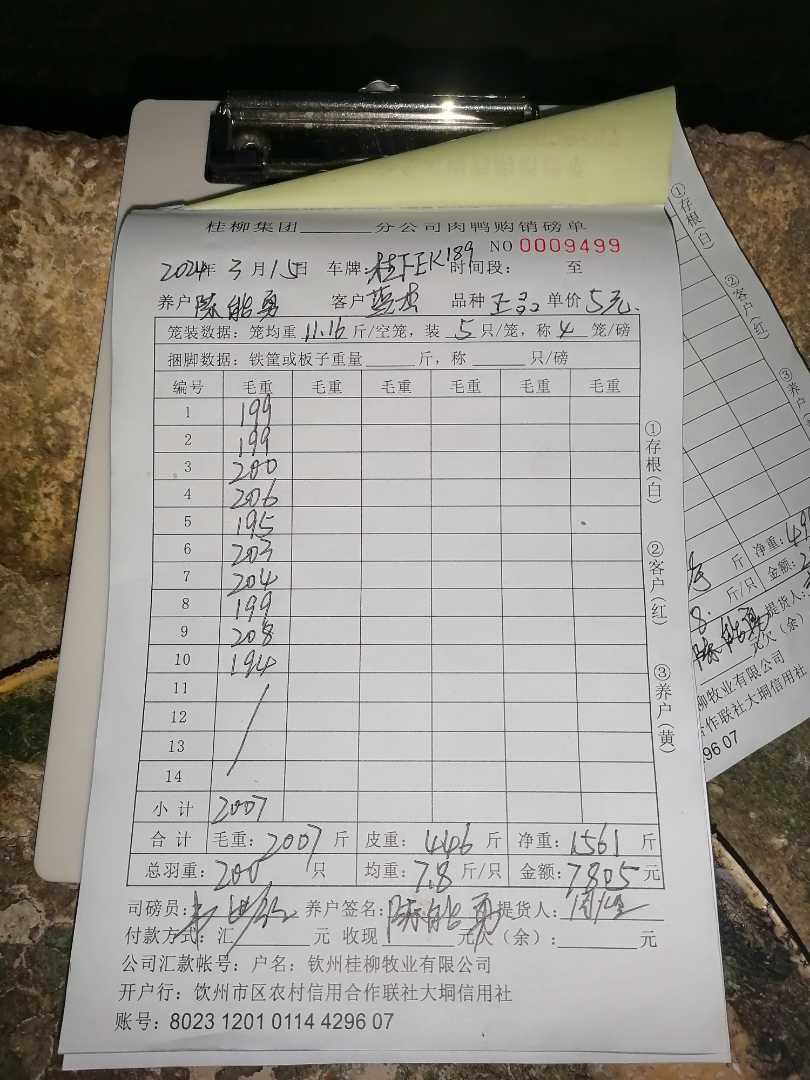 桂柳集团______分公司肉鸭购销磅单
NO 0009499
2024年3月15日 车牌: 时间段: 至
养户 陈能勇 客户 品种 单价 5元.
笼装数据: 笼均重 11.16 斤/空笼, 装 5 只/笼, 称 4 笼/磅
捆脚数据: 铁筐或板子重量______斤, 称______只/磅
编号 毛重 毛重 毛重 毛重 毛重 毛重
1 199
2 199
3 200
4 206
5 195
6 203
7 204
8 199
9 208
10 194
11
12
13
14
小计 2007
合计 毛重: 2007 斤 皮重: 446 斤 净重: 1561 斤
总羽重: 200 只 均重: 7.8 斤/只 金额: 7805 元
司磅员: 养户签名: 陈能勇 提货人:
付款方式: 汇______元 收现______元欠(余): ______元
公司汇款帐号: 户名: 钦州桂柳牧业有限公司
开户行: 钦州市区农村信用合作联社大垌信用社
账号: 8023 1201 0114 4296 07
①存根(白) ②客户(红) ③养户(黄)
①存根(白) ②客户(红) ③养
斤 净重:
8. 斤/只 金额:
陈能勇 提货人:
元欠(余)
柳牧业有限公司
合作联社大垌信用社
296 07